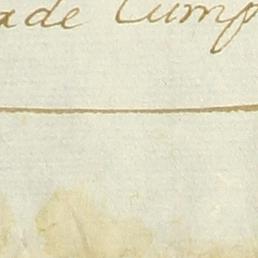 ade Cump